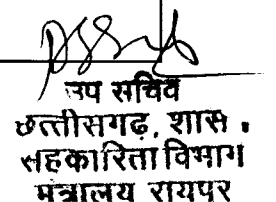 उप सचिव
छत्तीसगढ़, शास.
सहकारिता विभाग
मंत्रालय रायपुर